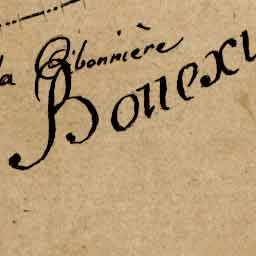 la Ribonnière
Bouexi